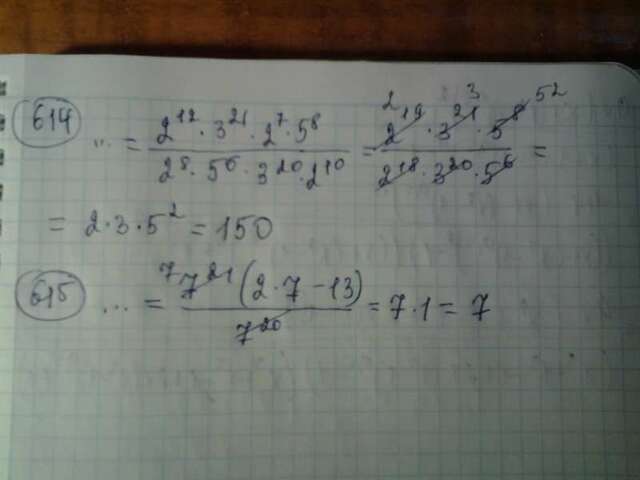 614 ... = 2^12 · 3^21 · 2^7 · 5^8 / 2^8 · 5^6 · 3^20 · 2^10 = 2^19 · 3^21 · 5^8 / 2^18 · 3^20 · 5^6 =
2 3 5^2
= 2 · 3 · 5^2 = 150
615 ... = 7 7^21 (2 · 7 - 13) / 7^20 = 7 · 1 = 7